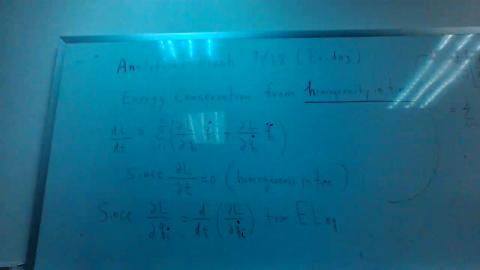 Analytical Mech 9/18 (
Energy Conservation from homogeneity in time
dL/dt = Σ (∂L/∂q q̇ + ∂L/∂q̇ q̈)
Since ∂L/∂t = 0 (homogeneous in time)
Since ∂L/∂qᵢ = d/dt (∂L/∂q̇ᵢ) from EL eq